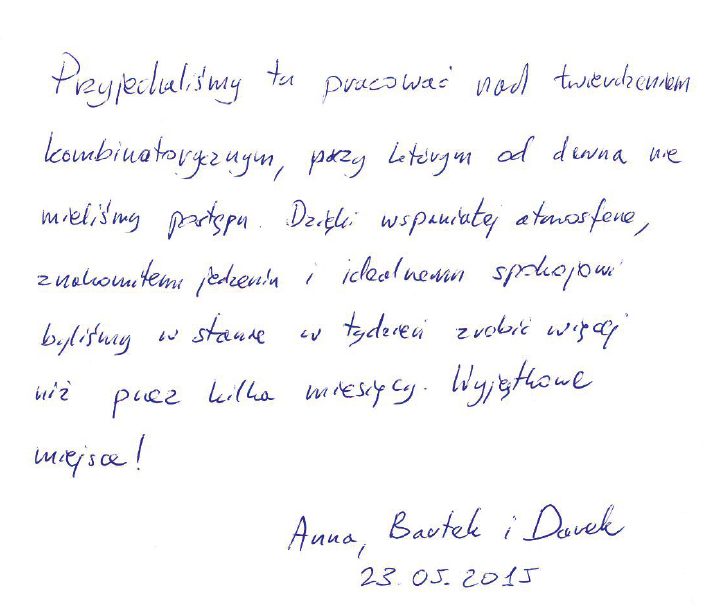 Przyjechaliśmy tu pracować nad twierdzeniem
kombinatorycznym, przy którym od dawna nie
mieliśmy postępu. Dzięki wspaniałej atmosferze,
znakomitemu jedzeniu i idealnemu spokojowi
byliśmy w stanie w tydzień zrobić więcej
niż przez kilka miesięcy. Wyjątkowe
miejsce!
Anna, Bartek i Darek
23.05.2015